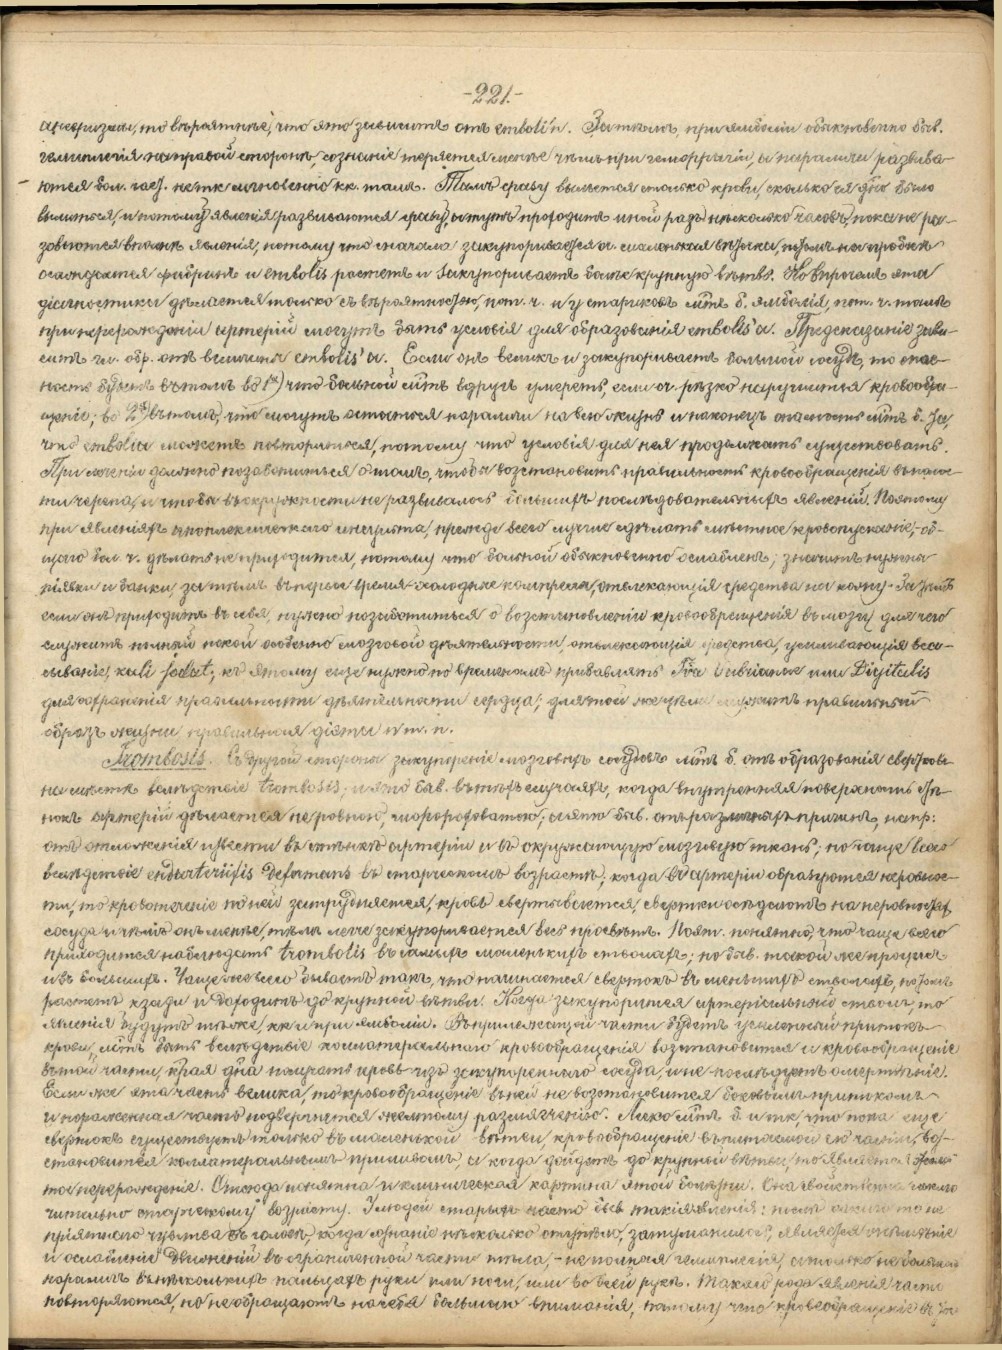 -221.-
аневризмы, то вѣроятнѣе, что это зависитъ отъ emboli'и. Затѣмъ, при эмболіи обыкновенно быв.
гемиплегія на правой сторонѣ, сознаніе теряется менѣе чѣмъ при геморрагіи, и параличи развива-
ются бол. част. не тк мгновенно кк. тамъ. Тамъ сразу выльется столько крови, сколько ея д. было
вылиться, и потому явленія развиваются сразу, а тутъ проходитъ иной разъ нѣсколько часовъ, пока не ра-
зовьются вполнѣ явленія, потому что сначала закупоривается маленькая вѣточка, потомъ на пробкѣ
осаждается фибринъ и embolis растетъ и закупориваетъ болѣе крупную вѣтвь. Но впрочемъ эта
діагностика дѣлается только съ вѣроятностью, пот. ч. и у стариковъ м.тъ б. эмболія, пот. ч. тамъ
при перерожденіи артерій могутъ быть условія для образованія embolis'а. Предсказаніе зави-
ситъ гл. обр. отъ величины embolis'а. Если онъ великъ и закупориваетъ большой сосудъ, то опас-
ность будетъ въ томъ во 1х) что больной м.тъ вдругъ умереть, если оч. рѣзко нарушится кровообра-
щеніе; во 2х) въ томъ, что могутъ остаться параличи на всю жизнь и наконецъ опасность м.тъ б. за
что embolia можетъ повториться, потому что условія для нея продолжаютъ существовать.
При леченіи должно позаботиться о томъ, чтобы возстановить правильность кровообращенія въ полос-
ти черепа, и чтобы въ окружности не развивалось большихъ послѣдовательныхъ явленій. Поэтому
при явленіяхъ апоплектическаго инсульта, прежде всего лучше сдѣлать мѣстное кровопусканіе, об-
щаго бол. ч. дѣлать не приходится, потому что больной обыкновенно ослабленъ; значитъ нужны
піявки и банки, затѣмъ въ первое время холодные компрессы, отвлекающія средства на кожу. Затѣмъ
если онъ приходитъ въ себя, нужно позаботиться о возстановленіи кровообращенія въ мозгу, для чего
служитъ полный покой особенно мозговой дѣятельности, отвлекающія средства, усиливающія всас-
сываніе, kali jodat., къ этому еще нужно по временамъ прибавлять T-ra Valerianae или Digitalis
для сохраненія правильности дѣятельности сердца; для той же цѣли служитъ правильный
образъ жизни правильная діэта и т. п.
Trombosis. Съ другой стороны закупореніе мозговыхъ сосудовъ м.тъ б. отъ образованія свертковъ
на мѣстѣ вслѣдствіе trombosis, и это быв. въ тѣхъ случаяхъ, когда внутренняя поверхность стѣ-
нокъ артерій дѣлается неровною, шороховатою; а это быв. отъ различныхъ причинъ, напр:
отъ отложенія извести въ стѣнкѣ артеріи и въ окружающую мозговую ткань; но чаще всего
вслѣдствіе endarteriitis deformans въ старческомъ возрастѣ; когда въ артеріи образуются неровнос-
ти, то кровотеченіе по ней затрудняется, кровь свертывается, свертки осѣдаютъ на неровностяхъ
сосуда и чѣмъ онъ менѣе, тѣмъ легче закупоривается весь просвѣтъ. Поэт. понятно, что чаще всего
приходится наблюдать trombolis въ самыхъ маленькихъ стволахъ; но быв. такой же процессъ
и въ большихъ. Чаще же всего бываетъ такъ, что начинается свертокъ въ меньшихъ стволахъ, потомъ
растетъ кзади и доходитъ до крупной вѣтви. Когда закупорится артеріальный стволъ, то
явленія будутъ тѣ же, кк и при эмболіи. Въ прилежащей части будетъ усиленный притокъ
крови, м.тъ быть вслѣдствіе коллатеральнаго кровообращенія возстановится и кровообращеніе
въ той части, края д. получать кровь изъ закупореннаго сосуда, и не послѣдуетъ омертвѣніе.
Если же эта часть велика, то кровообращеніе въ ней не возстановится боковымъ притокомъ
и пораженная часть подвергнется желтому размягченію. Легко м.тъ б. и тк, что пока еще
свертокъ существуетъ только въ маленькой вѣтви, кровообращеніе въ питаемой ею части воз-
становится коллатеральнымъ приливомъ, а когда дойдетъ до крупной вѣтви, то является жел-
тое перерожденіе. Отсюда понятна и клиническая картина этой болѣзни. Она свойственна исклю-
чительно старческому возрасту. У людей старыхъ часто быв. такія явленія: послѣ какого то не-
пріятнаго чувства въ головѣ, когда сознаніе нѣсколько отупѣло, затуманилось, является онѣмѣніе
и ослабленіе движеній въ ограниченной части тѣла, - не полная гемиплегія, а только небольшой
параличъ въ нѣсколькихъ пальцахъ руки или ноги, или во всей рукѣ. Такого рода явленія часто
повторяются, но не обращаютъ на себя большаго вниманія, потому что кровеобращеніе въ